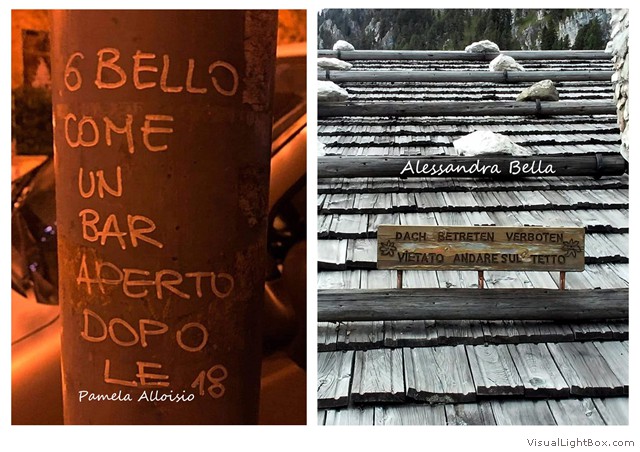 6 BELLO
COME
UN
BAR
APERTO
DOPO
LE 18
Pamela Alloisio
Alessandra Bella
DACH BETRETEN VERBOTEN
VIETATO ANDARE SUL TETTO
VisualLightBox.com